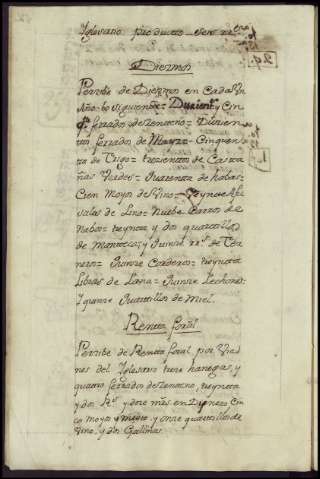 Yglesario produceto seis rr.s
24.
Diezmos
Perzibe de Diezmos en Cada Un
Año lo siguiente = Duzient.s y Cin
q.ta ferrados de zenteno = Duzien
tos ferrados de Mayz = Cinquen
ta de trigo = trezientos de Casta
ñas Verdes = Quarenta de habas
Cien Moyos de Vino = Treynta Afu
salas de Lino = Nuebe Carros de
Nabos = treynta y dos quartillos
de Manteca = y Quinze rr.s de Ter
neros = Quinze Corderos = treynta
Libras de Lana = Quinze Lechones
Y quinze Quartillos de Miel.
Renta foral
Perzibe de Renta foral por Vie
nes del Yglesario trece hanegas, y
quatro ferrados de zenteno, treynta
y dos R.s y doze mrs en Dinero, Cin
co moyos y medio, y onze quartillos de
Vino, y dos Gallinas